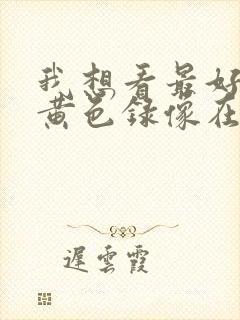 我想看最好
黄色録像在
遲雲霞